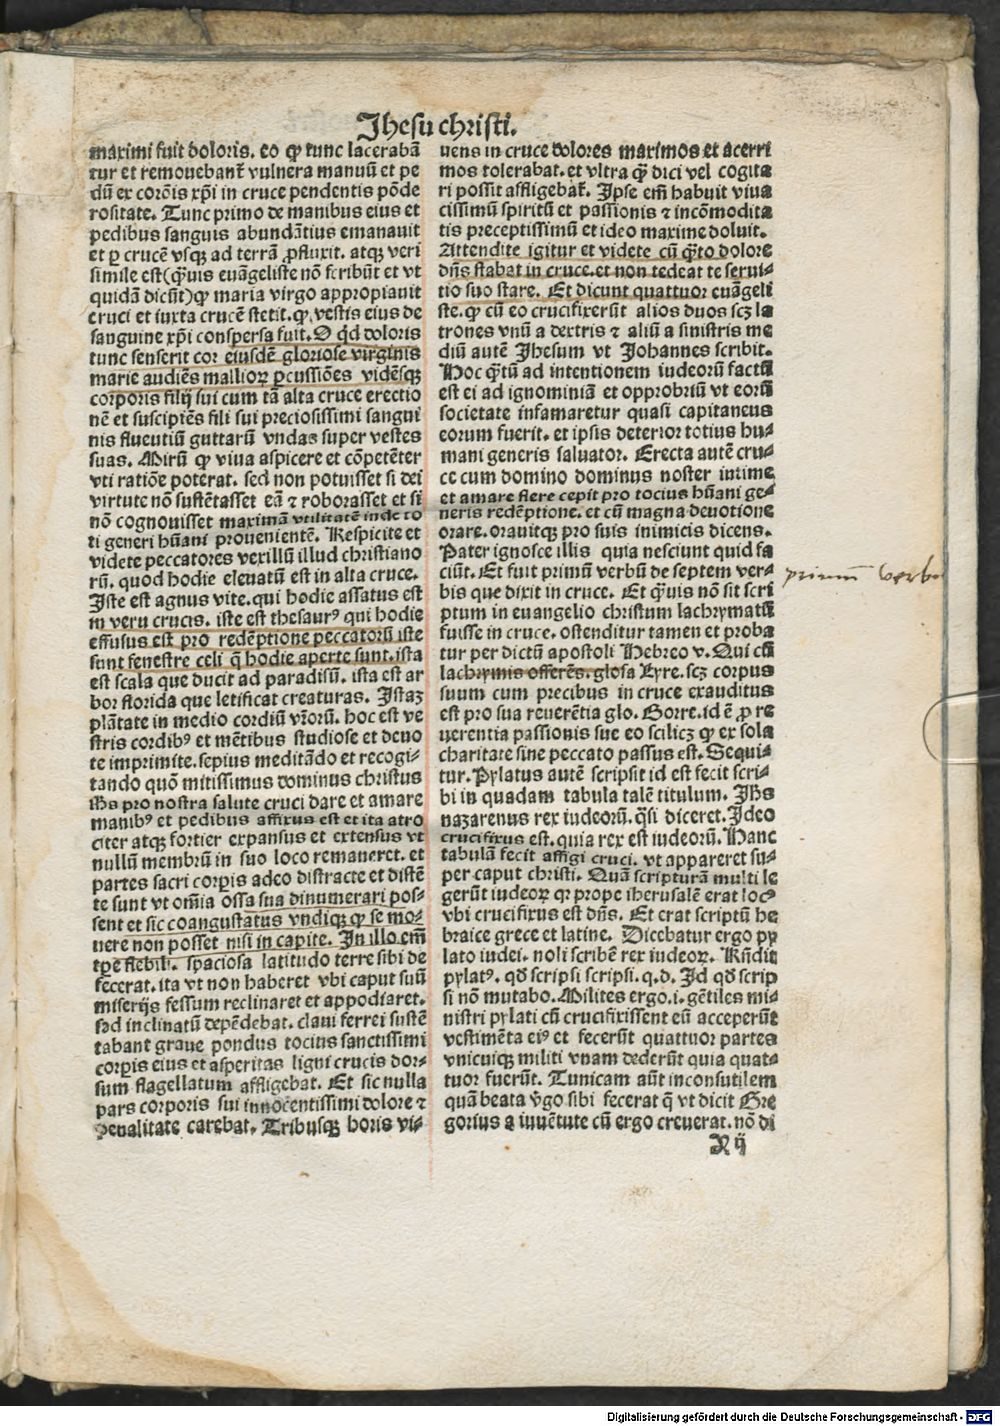 Jhesu christi.
maximi fuit doloris. eo ꝙ tunc lacerabã
tur et remouebant̃ vulnera manuũ et pe
dũ ex corꝑis xp̃i in cruce pendentis põde
rositate. Tunc primo de manibus eius et
pedibus sanguis abundãtius emanauit
et ꝑ crucẽ vsqꝫ ad terrã ꝓfluxit. atqꝫ veri
simile est(qꝫuis euãgeliste nõ scribũt et vt
quidã dicũt)ꝙ maria virgo appropiauit
cruci et iuxta crucẽ stetit. ꝙ vestis eius de
sanguine xp̃i conspersa fuit. O qd̃ doloris
tunc senserit cor eiusdẽ gloriose virginis
marie audiẽs mallioꝝ ꝑcussiões vidẽsqꝫ
corporis filij sui cum tã alta cruce erectio
nẽ et suscipiẽs fili sui preciosissimi sangui
nis fluentiũ guttarũ vndas super vestes
suas. Mirũ ꝙ viua aspicere et cõpetẽter
vti ratiõe poterat. sed non potuisset si dei
virtute nõ sustẽtasset eã ⁊ roborasset et si
nõ cognouisset maximã vtilitatẽ inde to
ti generi hũani prouenientẽ. Respicite et
videte peccatores vexillũ illud christiano
rũ. quod hodie eleuatũ est in alta cruce.
Iste est agnus vite. qui hodie assatus est
in veru crucis. iste est thesaurꝰ qui hodie
effusus est pro redẽptione peccatorũ iste
sunt fenestre celi q̃ hodie aperte sunt. ista
est scala que ducit ad paradisũ. ista est ar
bor florida que letificat creaturas. Istaꝫ
plãtate in medio cordiũ vr̃orũ. hoc est ve
stris cordibꝰ et mẽtibus studiose et deuo
te imprimite. sepius meditãdo et recogi-
tando quõ mitissimus dominus christus
ihs pro nostra salute cruci dare et amare
manibꝰ et pedibus affixus est et ita atro
citer atqꝫ fortiter expansus et extensus vt
nullũ membrũ in suo loco remaneret. et
partes sacri corꝑis adeo distracte et distẽ
te sunt vt oĩa ossa sua dinumerari pos-
sent et sic coangustatus vndiqꝫ ꝙ se mo-
uere non posset nisi in capite. In illo em̃
tꝑe flebili. spaciosa latitudo terre sibi de
fecerat. ita vt non haberet vbi caput suũ
miserijs fessum reclinaret et appodiaret.
sed inclinatũ depẽdebat. claui ferrei sustẽ
tabant graue pondus tocius sanctissimi
corꝑis eius et asperitas ligni crucis dor-
sum flagellatum affligebat. Et sic nulla
pars corporis sui innocentissimi dolore ⁊
penalitate carebat. Tribusqꝫ horis vi-
uens in cruce dolores maximos et acerri
mos tolerabat. et vltra qꝫ dici vel cogita
ri possit affligebat̃. Ipse em̃ habuit viua
cissimũ spiritũ et passionis ⁊ incõmodita
tis preceptissimũ et ideo maxime doluit.
Attendite igitur et videte cũ qꝫto dolore
dñs stabat in cruce. et non tedeat te serui-
tio suo stare. Et dicunt quattuor euãgeli
ste. ꝙ cũ eo crucifixerũt alios duos scꝫ la
trones vnũ a dextris ⁊ aliũ a sinistris me
diũ autẽ Jhesum vt Johannes scribit.
Hoc qꝫtũ ad intentionem iudeorũ factũ
est ei ad ignominiã et opprobriũ vt eorũ
societate infamaretur quasi capitaneus
eorum fuerit. et ipsis deterior totius hu-
mani generis saluator. Erecta autẽ cru-
ce cum domino dominus noster intime
et amare flere cepit pro tocius hũani ge-
neris redẽptione. et cũ magna deuotione
orare. orauitqꝫ pro suis inimicis dicens.
Pater ignosce illis quia nesciunt quid fa
ciũt. Et fuit primũ verbũ de septem ver-
bis que dixit in cruce. Et qꝫuis nõ sit scri
ptum in euangelio christum lachrymatũ
fuisse in cruce. ostenditur tamen et proba
tur per dictũ apostoli Hebreo v. Qui cũ
lachrymis offerẽs. glosa Lyre. scꝫ corpus
suum cum precibus in cruce exauditus
est pro sua reuerẽtia glo. Gorre. id ẽ ꝓ re
uerentia passionis sue eo scilicꝫ ꝙ ex sola
charitate sine peccato passus est. Sequi-
tur. Pylatus autẽ scripsit id est fecit scri-
bi in quadam tabula talẽ titulum. Jhs
nazarenus rex iudeorũ. qͣsi diceret. Ideo
crucifixus est. quia rex est iudeorũ. Hanc
tabulã fecit affigi cruci. vt appareret su-
per caput christi. Quã scripturã multi le
gerũt iudeoꝝ qꝛ prope iherusalẽ erat locꝰ
vbi crucifixus est dñs. Et erat scriptũ he
braice grece et latine. Dicebatur ergo py
lato iudei. noli scribẽ rex iudeoꝝ. Rñdit
pylatꝰ. qd̃ scripsi scripsi. q.d. Id qd̃ scrip
si nõ mutabo. Milites ergo .i. gẽtiles mi-
nistri pylati cũ crucifixissent eũ acceperũt
vestimẽta eiꝰ et fecerũt quattuor partes
vnicuiqꝫ militi vnam dederũt quia quat-
tuor fuerũt. Tunicam aũt inconsutilem
quã beata v̾go sibi fecerat q̃ vt dicit Gre
gorius a iuuẽtute cũ ergo creuerat. nõ di
N ij
primũ verbũ
Digitalisierung gefördert durch die Deutsche Forschungsgemeinschaft - DFG